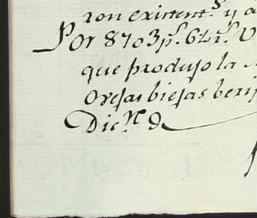 ron existent.s y a
Por 8703p.s 6 1/2 r.s V
que produjo la
Orejas biejas ben
Dic.re 9